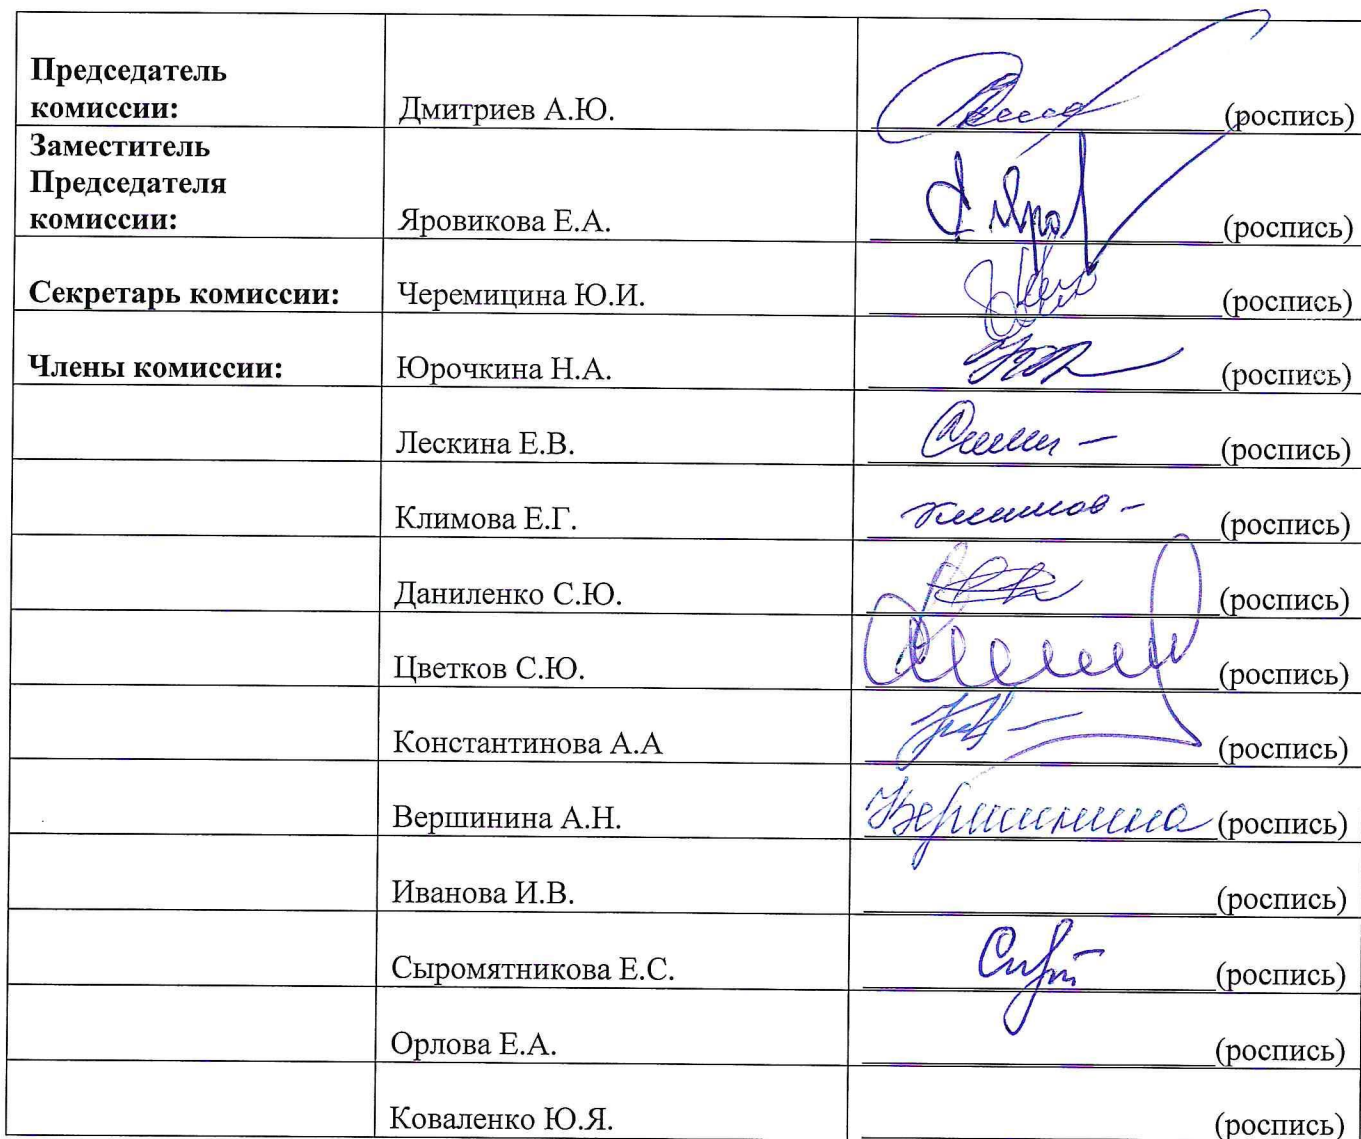 Председатель
комиссии: Дмитриев А.Ю. (роспись)
Заместитель
Председателя
комиссии: Яровикова Е.А. (роспись)
Секретарь комиссии: Черемицина Ю.И. (роспись)
Члены комиссии: Юрочкина Н.А. (роспись)
Лескина Е.В. (роспись)
Климова Е.Г. (роспись)
Даниленко С.Ю. (роспись)
Цветков С.Ю. (роспись)
Константинова А.А (роспись)
Вершинина А.Н. Вершинина (роспись)
Иванова И.В. (роспись)
Сыромятникова Е.С. (роспись)
Орлова Е.А. (роспись)
Коваленко Ю.Я. (роспись)